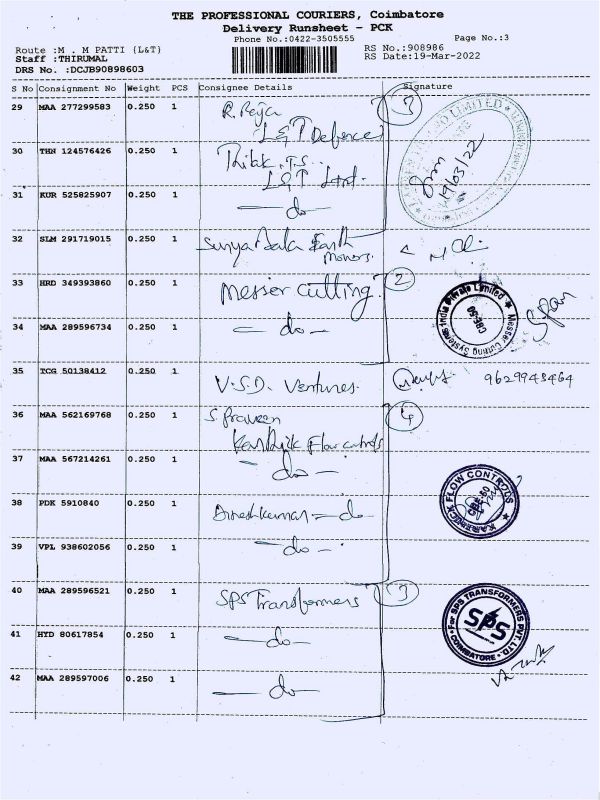 THE PROFESSIONAL COURIERS, Coimbatore
Delivery Runsheet - PCK
Phone No.:0422-3505555
Page No.:3
Route :M . M PATTI {L&T}
RS No.:908986
Staff :THIRUMAL
RS Date:19-Mar-2022
DRS No. :DCJB90898603
S No Consignment No Weight PCS Consignee Details Signature
29 MAA 277299583 0.250 1 R. Raja 3
L&T Defence
30 THN 124576426 0.250 1 Thilak. T.S.
L&T Ltd.
19/03/22
31 KUR 525825907 0.250 1 - do -
32 SLM 291719015 0.250 1 Surya Bala Earth
movers.
33 HRD 349393860 0.250 1 Messer cutting. 2
Messer Cutting Systems India Private Limited
CBE-50
34 MAA 289596734 0.250 1 - do -
35 TCG 50138412 0.250 1 V.S.D. Ventures. 9629943464
36 MAA 562169768 0.250 1 S. Praveen 4
Karthick Flow controls
37 MAA 567214261 1 0.250 1 - do -
KARTHICK FLOW CONTROLS
CBE-50
38 PDK 5910840 0.250 1 Dineshkumar - do -
39 VPL 938602056 0.250 1 - do -
40 MAA 289596521 0.250 1 SPS Transformers 3
For SPS TRANSFORMERS PVT. LTD.
SPS
COIMBATORE
41 HYD 80617854 0.250 1 - do -
42 MAA 289597006 0.250 1 - do -